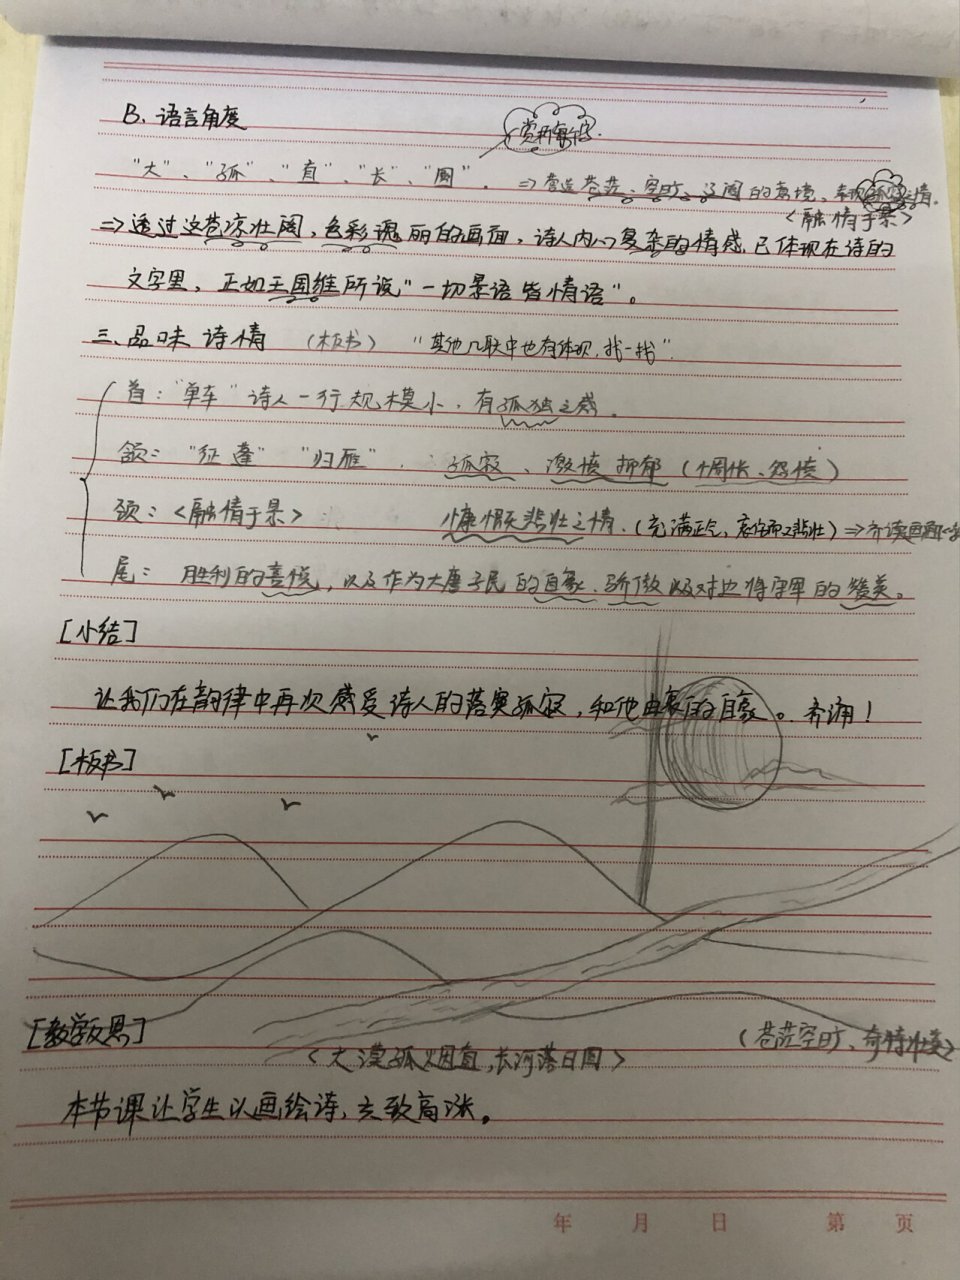 B. 语言角度
赏析
"大"、"孤"、"直"、"长"、"圆"。 ⇒ 营造苍茫、空旷、辽阔的意境,表现孤寂之情。
<融情于景>
⇒透过这苍凉壮阔,色彩瑰丽的画面,诗人内心复杂的情感已体现在诗的
文字里,正如王国维所说"一切景语皆情语"。
三、品味诗情 (板书) "其他几联中也有体现,找一找"
首:"单车" 诗人一行规模小,有孤独之感。
颔: "征蓬" "归雁". 孤寂、激愤抑郁(惆怅、怨愤)
颈:<融情于景> 慷慨悲壮之情.(充满正气,豪迈而又悲壮)⇒齐读
尾: 胜利的喜悦,以及作为大唐子民的自豪、骄傲以及对边将守军的赞美。
[小结]
让我们在韵律中再次感受诗人的落寞孤寂,和他由衷的自豪。齐诵!
[板书]
[教学反思]
(苍茫空旷、奇特壮美)
<大漠孤烟直,长河落日圆>
本节课让学生以画绘诗,兴致高涨。
年 月 日 第 页